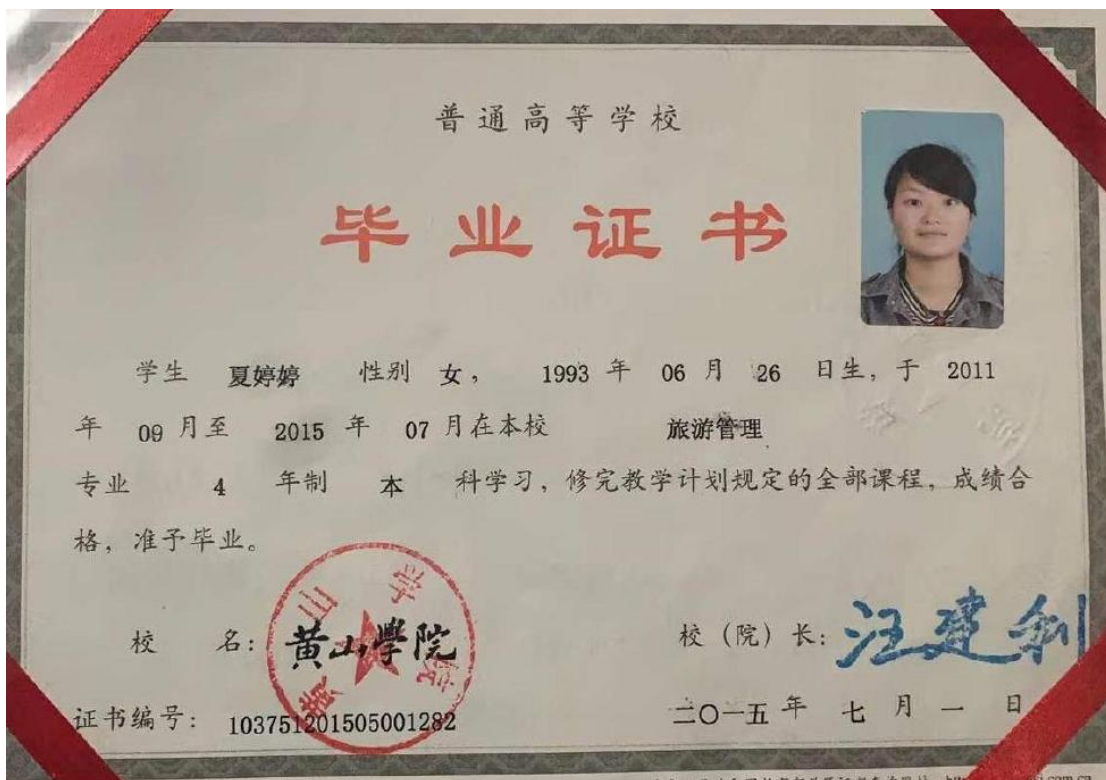 普通高等学校
毕业证书
学生 夏婷婷 性别 女， 1993 年 06 月 26 日生，于 2011
年 09 月至 2015 年 07 月在本校 旅游管理
专业 4 年制 本 科学习，修完教学计划规定的全部课程，成绩合
格，准予毕业。
黄山学院
校 名：黄山學院 校（院）长：汪建利
证书编号：103751201505001282 二〇一五 年 七 月 一 日